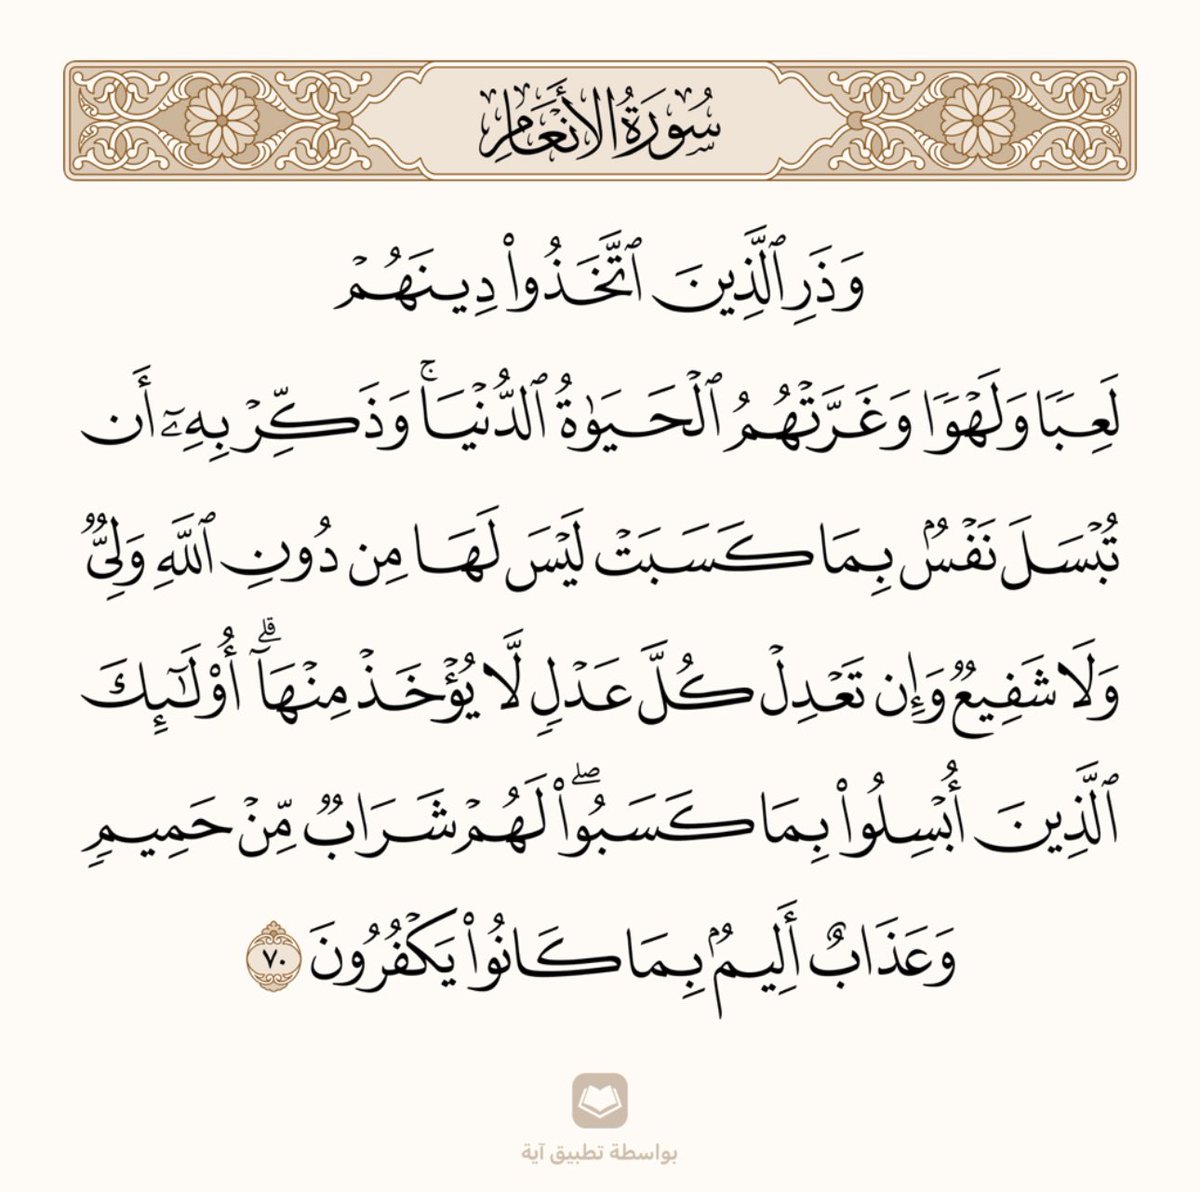 سُورَةُ الأَنْعَامِ
وَذَرِ ٱلَّذِينَ ٱتَّخَذُواْ دِينَهُمۡ
لَعِبٗا وَلَهۡوٗا وَغَرَّتۡهُمُ ٱلۡحَيَوٰةُ ٱلدُّنۡيَاۚ وَذَكِّرۡ بِهِۦٓ أَن
تُبۡسَلَ نَفۡسُۢ بِمَا كَسَبَتۡ لَيۡسَ لَهَا مِن دُونِ ٱللَّهِ وَلِيّٞ
وَلَا شَفِيعٞ وَإِن تَعۡدِلۡ كُلَّ عَدۡلٖ لَّا يُؤۡخَذۡ مِنۡهَآۗ أُوْلَـٰٓئِكَ
ٱلَّذِينَ أُبۡسِلُواْ بِمَا كَسَبُواْۖ لَهُمۡ شَرَابٞ مِّنۡ حَمِيمٖ
وَعَذَابٌ أَلِيمُۢ بِمَا كَانُواْ يَكۡفُرُونَ ٧٠
بواسطة تطبيق آية